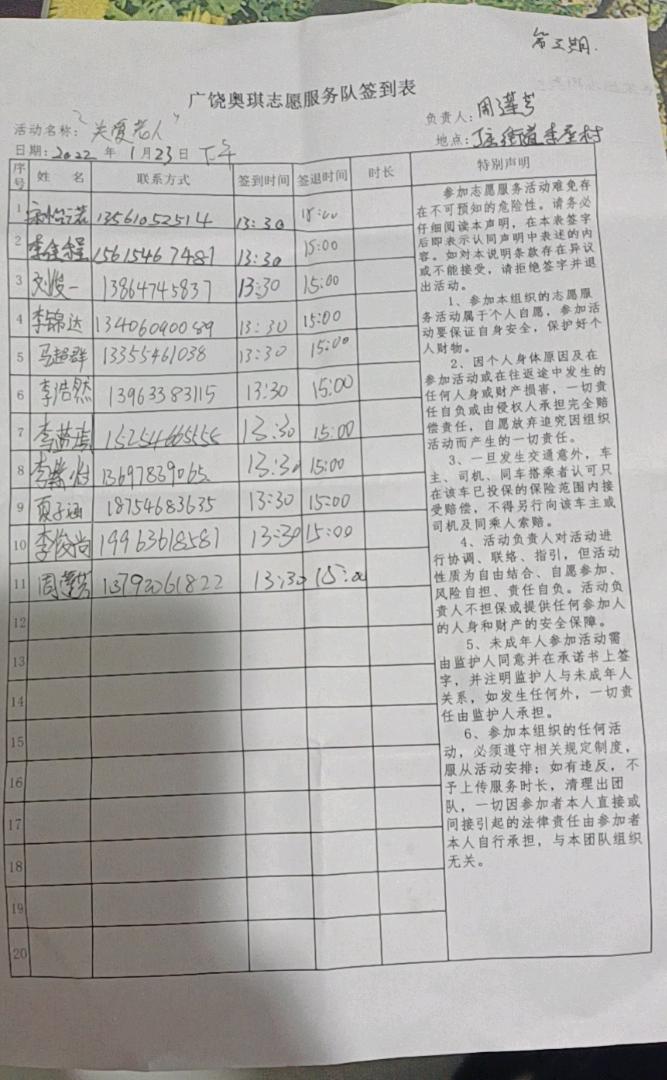 第三期.
广饶奥琪志愿服务队签到表
活动名称：“关爱老人” 负责人：周莲芳
日期：2022 年 1月 23 日 下午 地点：街道李 村
序号 姓 名 联系方式 签到时间 签退时间 时长 特别声明
1 13561052514 13:30 15:00
2 15615467481 13:30 15:00
3 刘俊一 13864745837 13:30 15:00
4 李锦达 13406090089 13:30 15:00
5 马超群 13355461038 13:30 15:00
6 李浩然 13963383115 13:30 15:00
7 15254665655 13:30 15:00
8 13697839065 13:30 15:00
9 夏子涵 18754683635 13:30 15:00
10 李俊尚 19963618581 13:30 15:00
11 周莲芳 13793061822 13:30 15:00
12
13
14
15
16
17
18
19
20
参加志愿服务活动难免存
在不可预知的危险性。请务必
仔细阅读本声明，在本表签字
后即表示认同声明中表述的内
容。如对本说明条款存在异议
或不能接受，请拒绝签字并退
出活动。
1、参加本组织的志愿服
务活动属于个人自愿，参加活
动要保证自身安全，保护好个
人财物。
2、因个人身体原因及在
参加活动或在往返途中发生的
任何人身或财产损害，一切责
任自负或由侵权人承担完全赔
偿责任，自愿放弃追究因组织
活动而产生的一切责任。
3、一旦发生交通意外，车
主、司机、同车搭乘者认可只
在该车已投保的保险范围内接
受赔偿，不得另行向该车主或
司机及同乘人索赔。
4、活动负责人对活动进
行协调、联络、指引，但活动
性质为自由结合、自愿参加、
风险自担、责任自负。活动负
责人不担保或提供任何参加人
的人身和财产的安全保障。
5、未成年人参加活动需
由监护人同意并在承诺书上签
字，并注明监护人与未成年人
关系，如发生任何外，一切责
任由监护人承担。
6、参加本组织的任何活
动，必须遵守相关规定制度，
服从活动安排；如有违反，不
予上传服务时长，清理出团
队，一切因参加者本人直接或
间接引起的法律责任由参加者
本人自行承担，与本团队组织
无关。